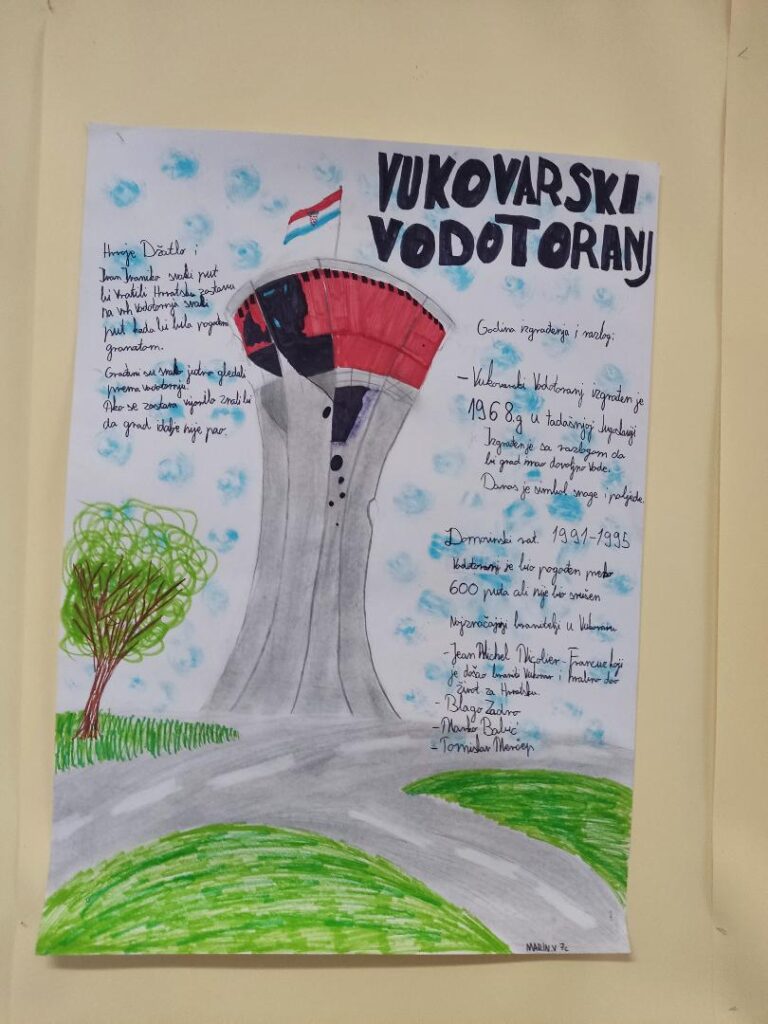 VUKOVARSKI
VODOTORANJ
Hrvoje Džalto i
Ivan Ivaniko svaki put
bi vratili Hrvatsku zastavu
na vrh vodotornja svaki
put kada bi bila pogođena
granatom.
Građani su svako jutro gledali
prema vodotornju.
Ako se zastava vijorila znali bi
da grad idalje nije pao.
Godina izgrađenja i razlog:
- Vukovarski Vodotoranj izgrađen je
1968.g u tadašnjoj Jugoslaviji
Izgrađen je sa razlogom da
bi grad imao dovoljno vode.
Danas je simbol snage i pobjede.
Domovinski rat 1991-1995
Vodotoranj je bio pogođen preko
600 puta ali nije bio srušen
Najznačajniji branitelji u Vukovaru
- Jean Michel Nicolier - Francuz koji
je došao braniti Vukovar i hrabro dao
život za Hrvatsku.
- Blago Zadro
- Marko Babić
- Tomislav Merčep
MARIN.V 7c